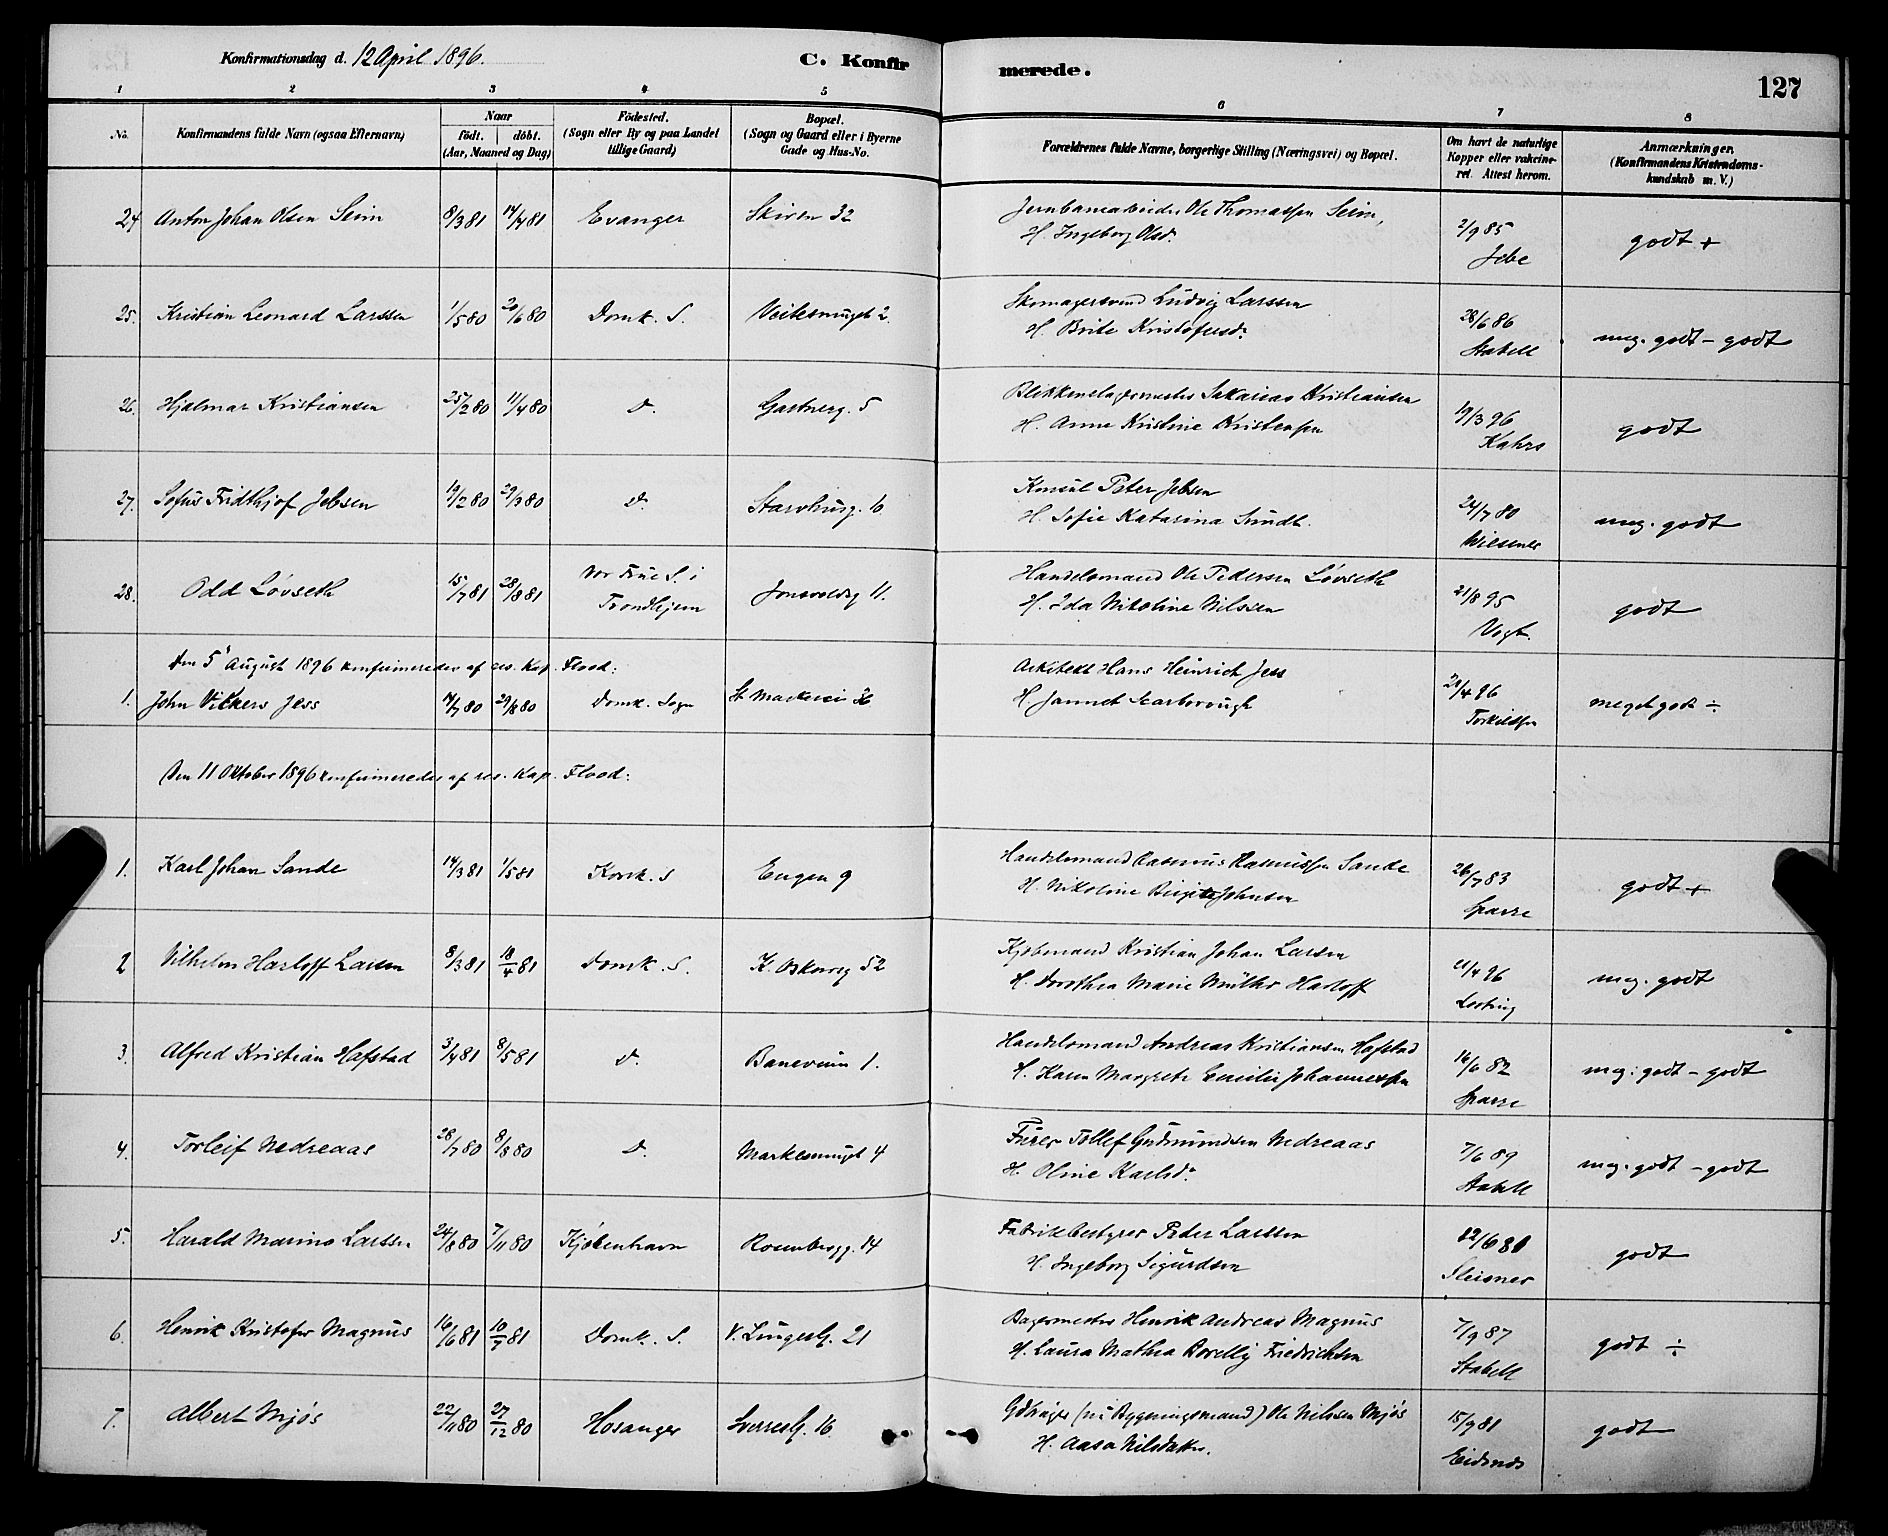 Konfirmationsdag d. 12 April 1896.
C. Konfirmerede.
127
1 2 3 4 5 6 7 8
No.
Konfirmandens fulde Navn (ogsaa Efternavn)
Naar
födt. döbt.
(Aar, Maaned og Dag)
Födested.
(Sogn eller By og paa Landet
tillige Gaard)
Bopæl.
(Sogn og Gaard eller i Byerne
Gade og Hus-No.
Forældrenes fulde Navne, borgerlige Stilling (Næringsvei) og Bopæl.
Om havt de naturlige
Kopper eller vakcine-
ret. Attest herom.
Anmærkninger.
(Konfirmandens Kristendoms-
kundskab m. V.)
24 Anton Johan Olsen Seim 8/3 81 14/4 81 Evanger Skiven 32 Jernbanearbeider Ole Thomassen Seim, 2/9 85 godt +
H. Ingeborg Olsd.
25. Kristian Leonard Larssen 1/5 80 20/6 80 Domk. S. Veitesmuget 2. Skomagersvend Ludvig Larssen 28/6 86 meg. godt - godt
H. Brite Kristofersd. Stabell
26. Hjalmar Kristiansen 25/2 80 11/4 80 d. Gartnerg. 5 Blikkenslagermester Sakarias Kristiansen 19/3 96 godt
H. Anne Kristine Kristensen Kahrs
27. Sofus Fridthjof Jebsen 19/2 80 29/3 80 d. Starvhusg. 6 Konsul Peter Jebsen 24/7 80 meg. godt
H. Sofie Katarina Sundt. Wiesener
28. Odd Løvseth 15/7 81 28/8 81 Vor Frue S. i Jonsvoldsg 11. Handelsmand Ole Pedersen Løvseth 21/8 95 godt
Trondhjem H. Ida Nikoline Nilssen Vogt.
Den 5 August 1896 konfirmeredes af res. Kap. Flood:
1. John Vickers Jess 4/7 80 29/8 80 Domk. Sogn St Markevei 36 Arkitekt Hans Heinrich Jess 20/4 96 meget godt ÷
H. Jannet Scarborough Torkildsen
Den 11 Oktober 1896 konfirmeredes af res. Kap. Flood:
1. Karl Johan Sande 14/3 81 1/5 81 Korsk. S Engen 9 Handelsmand Rasmus Rasmussen Sande 26/7 83 godt +
H. Nikoline Birgitte Johnsen Sparre
2 Vilhelm Harloff Larsen 8/3 81 18/4 81 Domk. S. K. Oskarsg 52 Kjøbmand Kristian Johan Larsen 21/4 96 meg. godt
H. Dorothea Marie Müller Harloff
3. Alfred Kristian Hafstad 3/4 81 8/5 81 d. Baneveien 1. Handelsmand Andreas Kristiansen Hafstad 14/6 82 meg: godt - godt
H. Karen Margrete Cecilie Johannessen Sparre
4. Torleif Nedreaas 28/7 80 8/8 80 d. Markesmuget 4 Furer Tollef Gudmundsen Nedreaas 7/6 89 meg. godt - godt
H. Oline Karlsd. Stabell
5. Harald Marino Larssen 24/8 80 7/11 80 Kjøbenhavn Rosenbergg. 14 Fabrikbestyrer Peder Larssen 22/6 81 godt
H. Ingeborg Sigurdsen Meisner
6. Henrik Kristofer Magnus 16/6 81 10/7 81 Domk. S. V. Lungestr. 21 Bagermester Henrik Andreas Magnus 7/9 87 godt ÷
H. Laura Mathea Borelly Friedrichsen Stabell
7. Albert Mjøs 22/11 80 27/12 80 Hosanger Sverresg. 16. Gdbruger (nu Bygningsmand) Ole Nilssen Mjøs 15/9 81 godt
H. Aasa Nilsdatter. Eidsnes